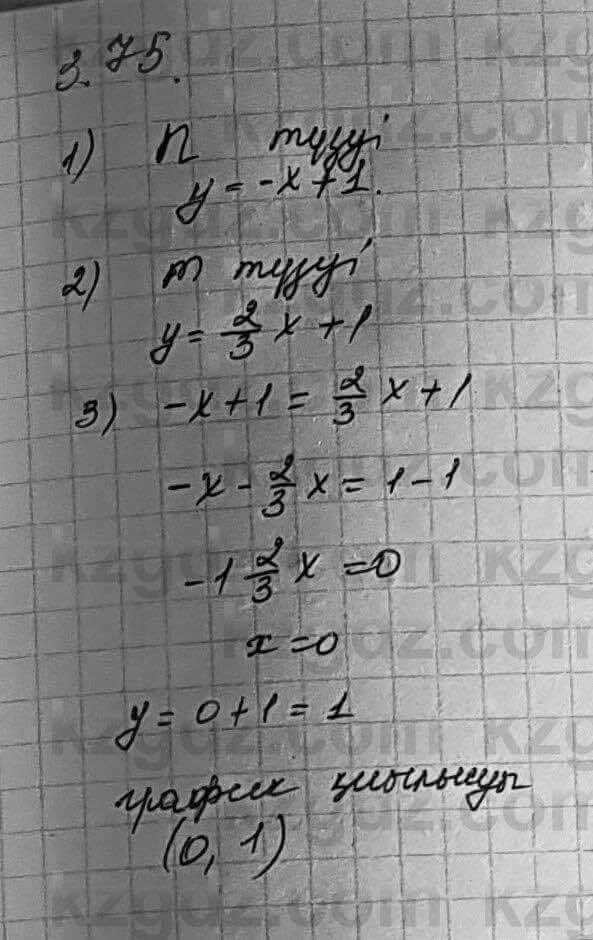 3.75.
1) n түзуі
y = -x + 1.
2) m түзуі
y = 2/3 x + 1
3) -x + 1 = 2/3 x + 1
-x - 2/3 x = 1 - 1
-1 2/3 x = 0
x = 0
y = 0 + 1 = 1
график қиылысуы
(0, 1)
kzgdz.com